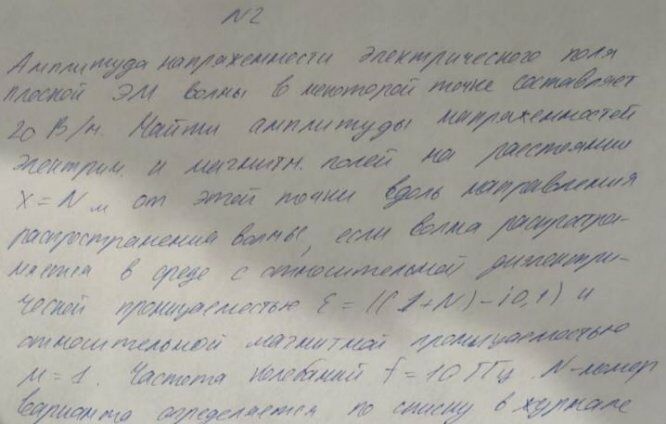 N2
Амплитуда напряженности электрического поля
плоской ЭМ волны в некоторой точке составляет
20 В/м. Найти амплитуды напряженностей
электрич. и магнитн. полей на расстоянии
x = N м от этой точки вдоль направления
распространения волны, если волна распростра-
няется в среде с относительной диэлектри-
ческой проницаемостью ε = ((1+N) - i0,1) и
относительной магнитной проницаемостью
μ = 1. Частота колебаний f = 10 ГГц. N-номер
варианта определяется по списку в журнале